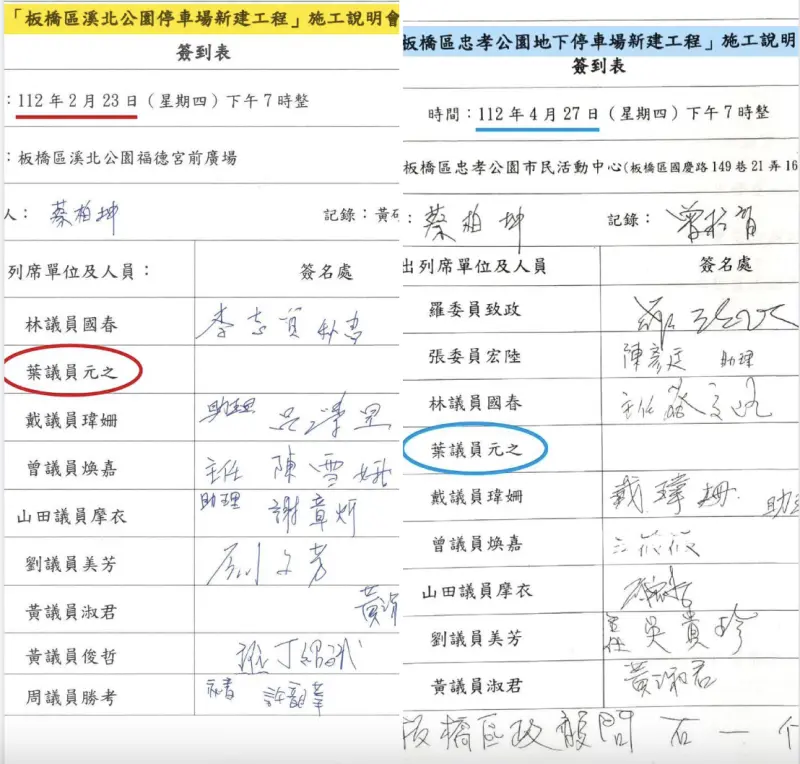 「板橋區溪北公園停車場新建工程」施工說明會
簽到表
：112年2月23日（星期四）下午7時整
：板橋區溪北公園福德宮前廣場
人：蔡柏坤 記錄：黃
列席單位及人員： 簽名處
林議員國春 李志
葉議員元之
戴議員瑋姍 助理
曾議員煥嘉 主任 陳雪娥
山田議員摩衣 助理 謝章炘
劉議員美芳
黃議員淑君 黃
黃議員俊哲
周議員勝考 秘書
板橋區忠孝公園地下停車場新建工程」施工說明
簽到表
時間：112年4月27日（星期四）下午7時整
板橋區忠孝公園市民活動中心(板橋區國慶路149巷21弄16
：蔡柏坤 記錄：
出列席單位及人員 簽名處
羅委員致政
張委員宏陸 陳彥廷 助理
林議員國春 主任
葉議員元之
戴議員瑋姍 戴瑋姍 助
曾議員煥嘉
山田議員摩衣
劉議員美芳 主任 吳貴珍
黃議員淑君 黃淑君
板橋區政顧問 石一